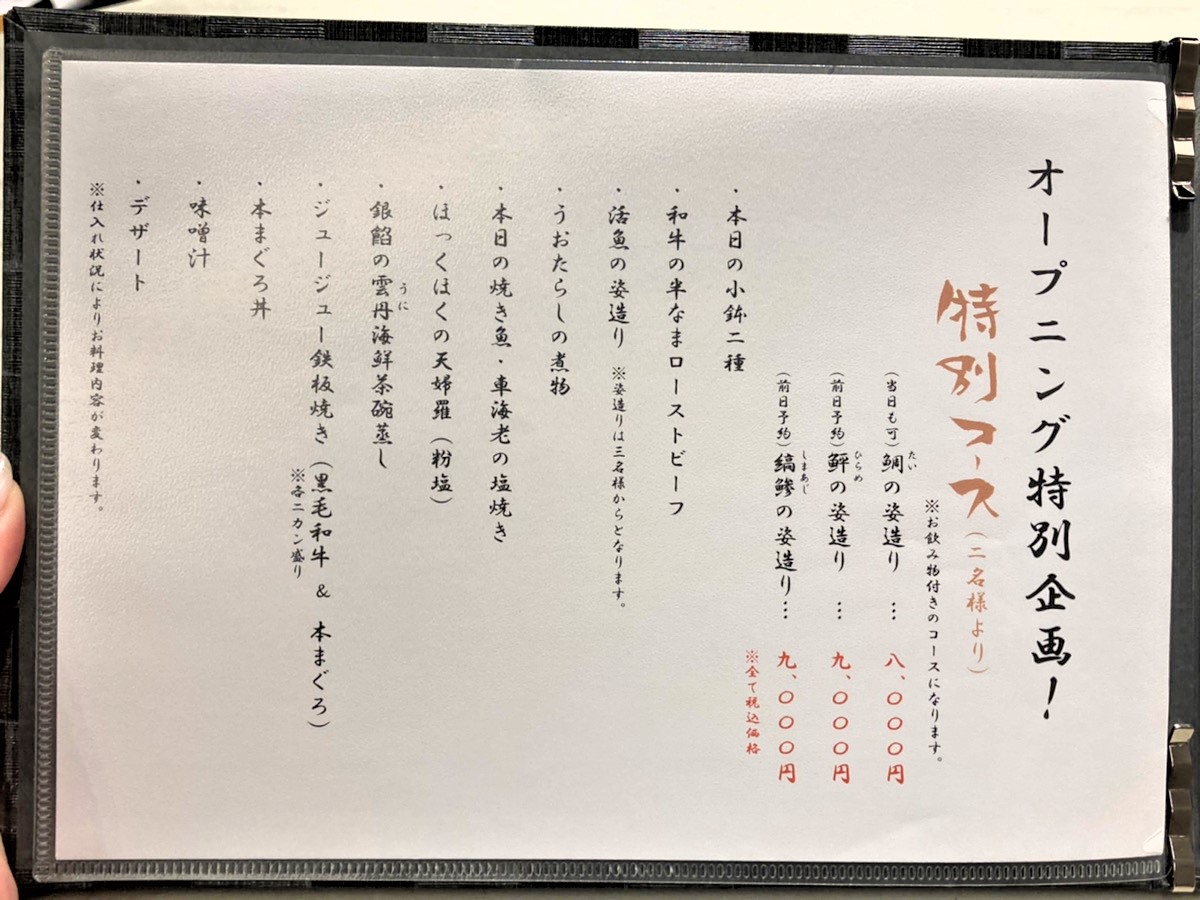 オープニング特別企画!
特別コース(二名様より)
※お飲み物付きのコースになります。
(当日も可)鯛の姿造り …八、〇〇〇円
たい
(前日予約)鮃の姿造り …九、〇〇〇円
ひらめ
(前日予約)縞鯵の姿造り…九、〇〇〇円
しまあじ
※全て税込価格
・本日の小鉢二種
・和牛の半なまローストビーフ
・活魚の姿造り ※姿造りは三名様からとなります。
・うおたらしの煮物
・本日の焼き魚・車海老の塩焼き
・ほっくほくの天婦羅(粉塩)
・銀餡の雲丹海鮮茶碗蒸し
うに
・ジュージュー鉄板焼き(黒毛和牛 & 本まぐろ)
※各二カン盛り
・本まぐろ丼
・味噌汁
・デザート
※仕入れ状況によりお料理内容が変わります。